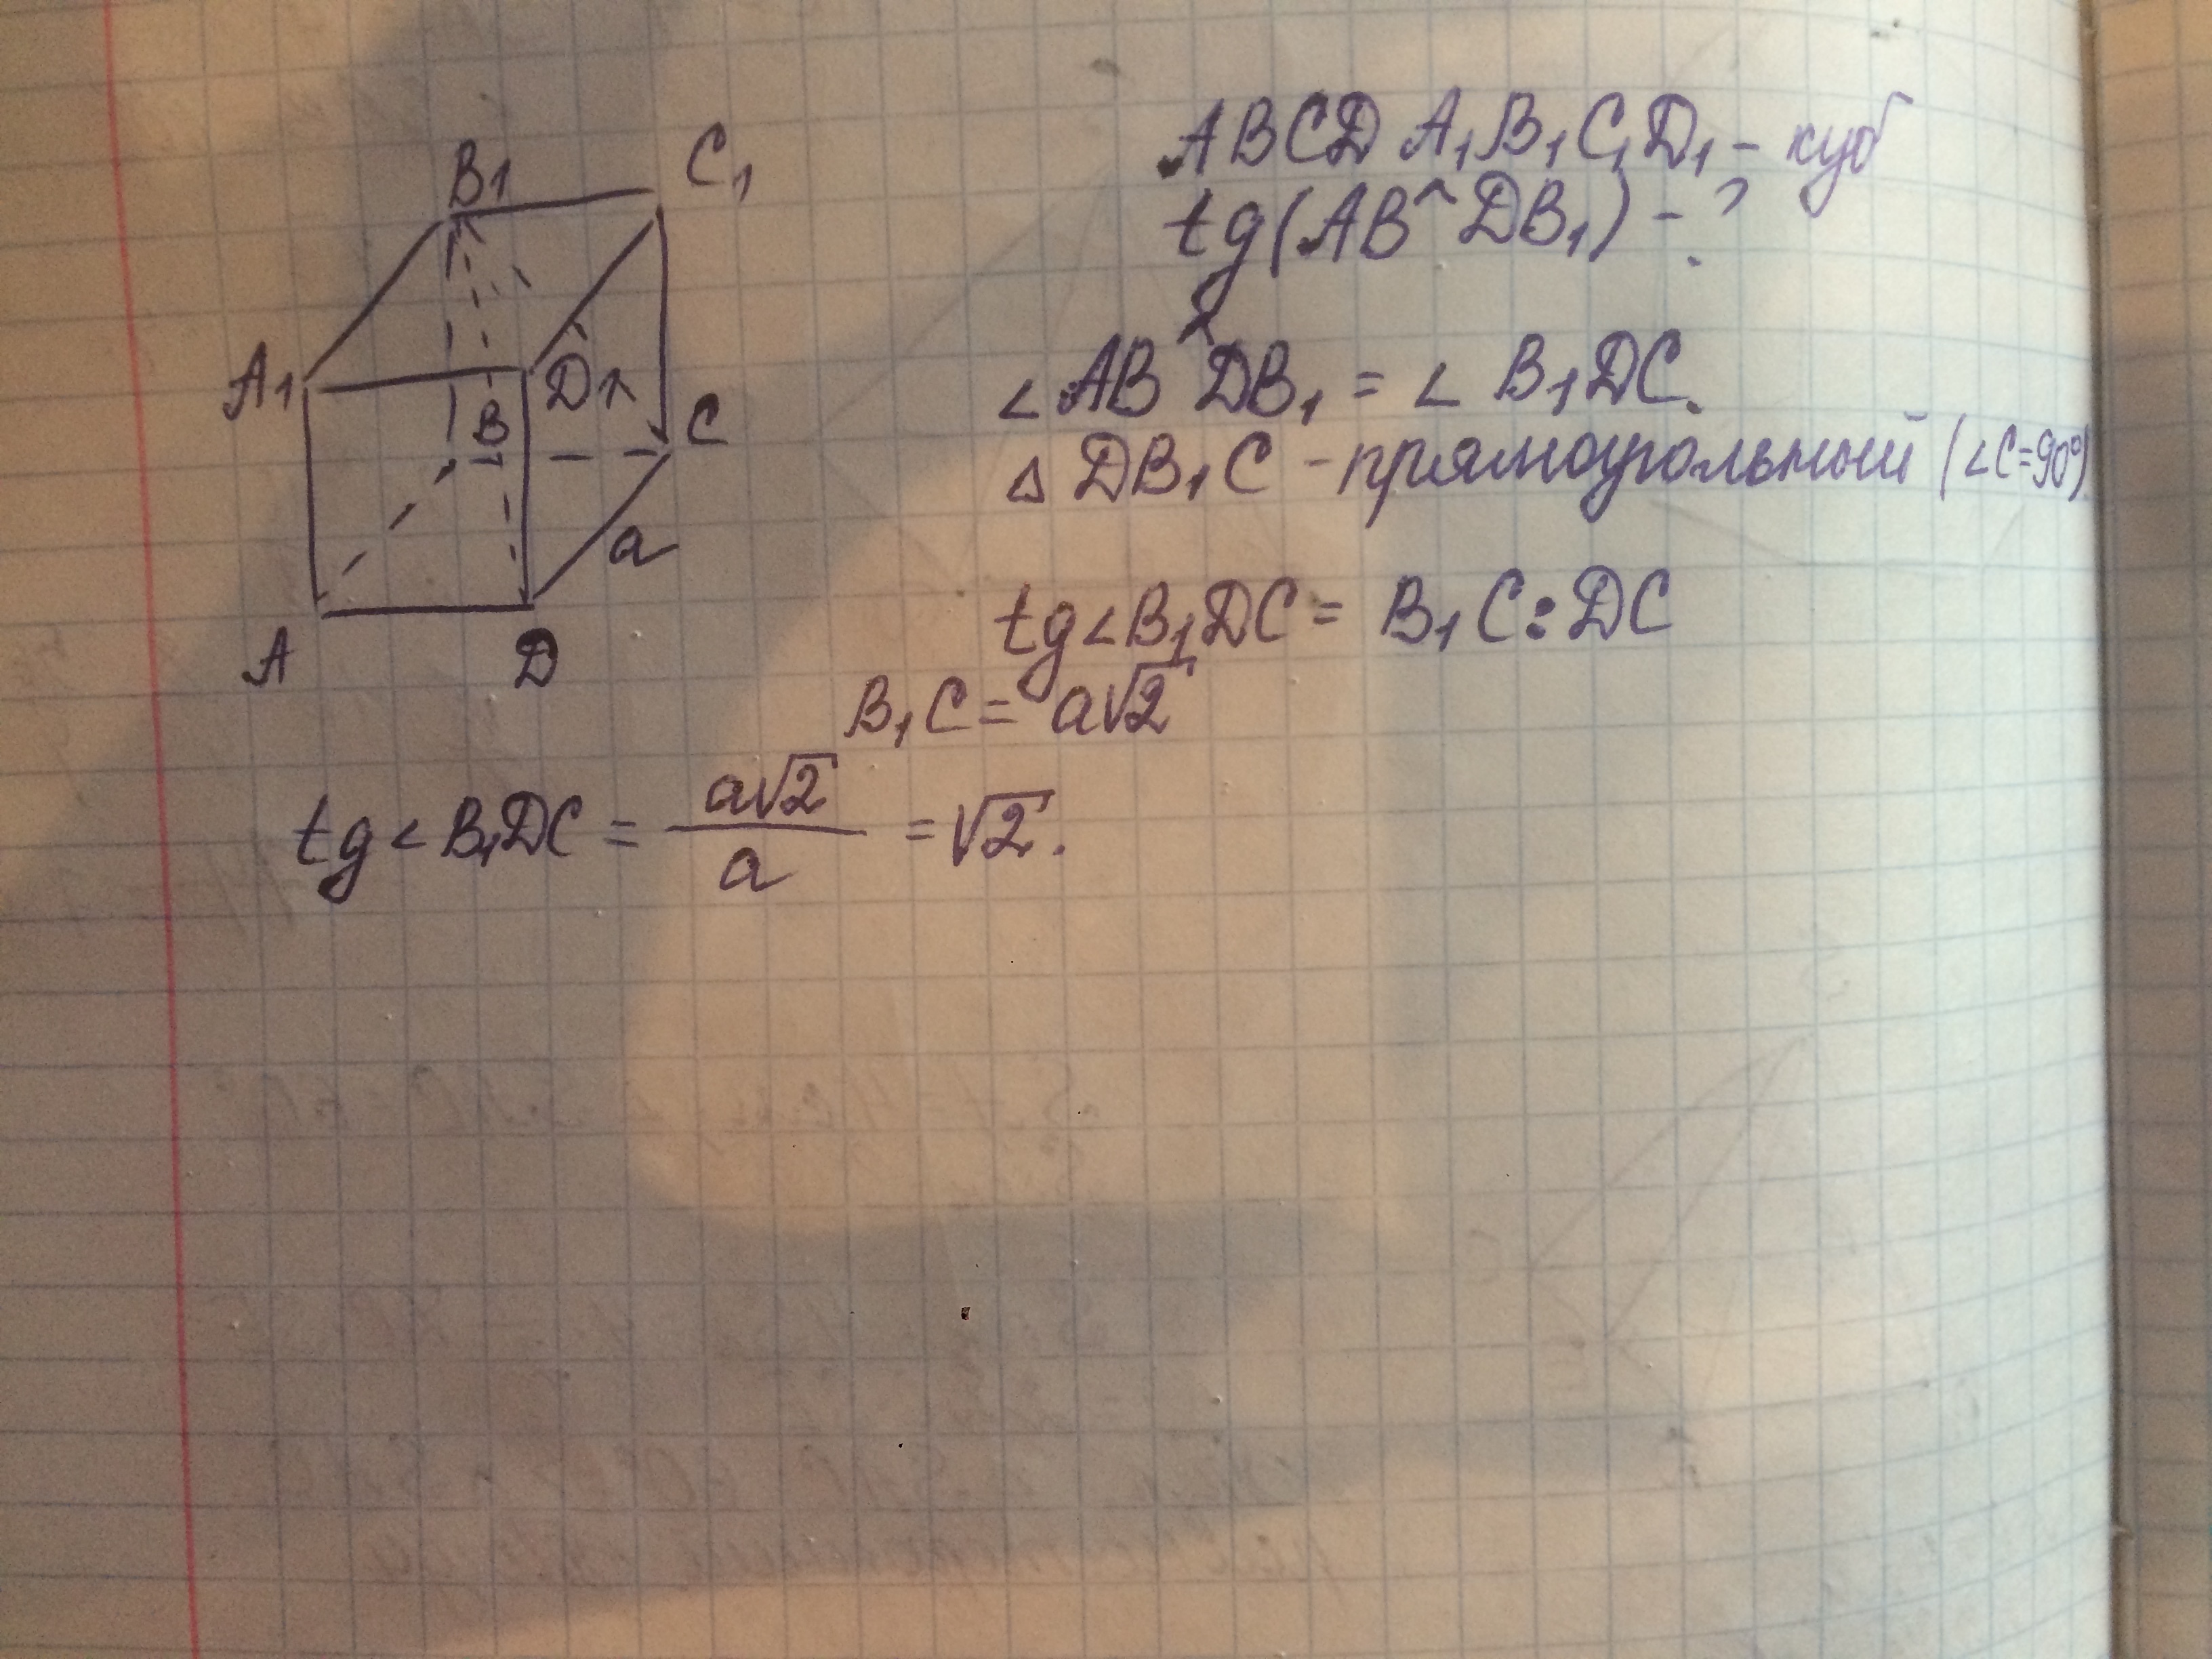 B₁ C₁
A₁ D₁
B C
a
A D
ABCD A₁B₁C₁D₁ – куб
tg(AB^DB₁) – ?
∠AB^DB₁ = ∠ B₁DC.
△ DB₁C – прямоугольный (∠C=90°)
tg∠B₁DC = B₁C : DC
B₁C = a√2
tg∠B₁DC = a√2 / a = √2.